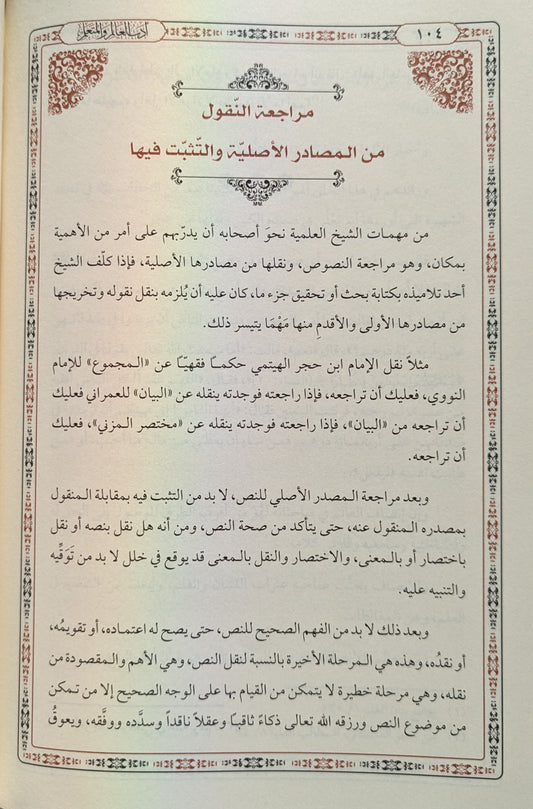 ١٠٤
أدب العالم والمتعلم
مراجعة النّقول
من المصادر الأصليّة والتّثبّت فيها
من مهمات الشيخ العلمية نحوَ أصحابه أن يدرّبهم على أمر من الأهمية
بمكان، وهو مراجعة النصوص، ونقلها من مصادرها الأصلية، فإذا كلّف الشيخ
أحد تلاميذه بكتابة بحث أو تحقيق جزء ما، كان عليه أن يُلزمه بنقل نقوله وتخريجها
من مصادرها الأولى والأقدمِ منها مَهْمَا يتيسر ذلك.
مثلاً نقل الإمام ابن حجر الهيتمي حكمـًا فقهيـًا عن «المجموع» للإمام
النووي، فعليك أن تراجعه، فإذا راجعته فوجدته ينقله عن «البيان» للعمراني فعليك
أن تراجعه من «البيان»، فإذا راجعته فوجدته ينقله عن «مختصر المزني»، فعليك
أن تراجعه.
وبعد مراجعة المصدر الأصلي للنص، لا بد من التثبت فيه بمقابلة المنقول
بمصدره المنقول عنه، حتى يتأكد من صحة النص، ومن أنه هل نقل بنصه أو نقل
باختصار أو بالمعنى، والاختصار والنقل بالمعنى قد يوقع في خلل لا بد من تَوَقِّيه
والتنبيه عليه.
وبعد ذلك لا بد من الفهم الصحيح للنص، حتى يصح له اعتماده، أو تقويمُه،
أو نقدُه، وهذه هي المرحلة الأخيرة بالنسبة لنقل النص، وهي الأهم والمقصودة من
نقله، وهي مرحلة خطيرة لا يتمكن من القيام بها على الوجه الصحيح إلا من تمكن
من موضوع النص ورزقه الله تعالى ذكاءً ثاقبـًا وعقلاً ناقداً وسدَّده ووفَّقه، ويعوقُ